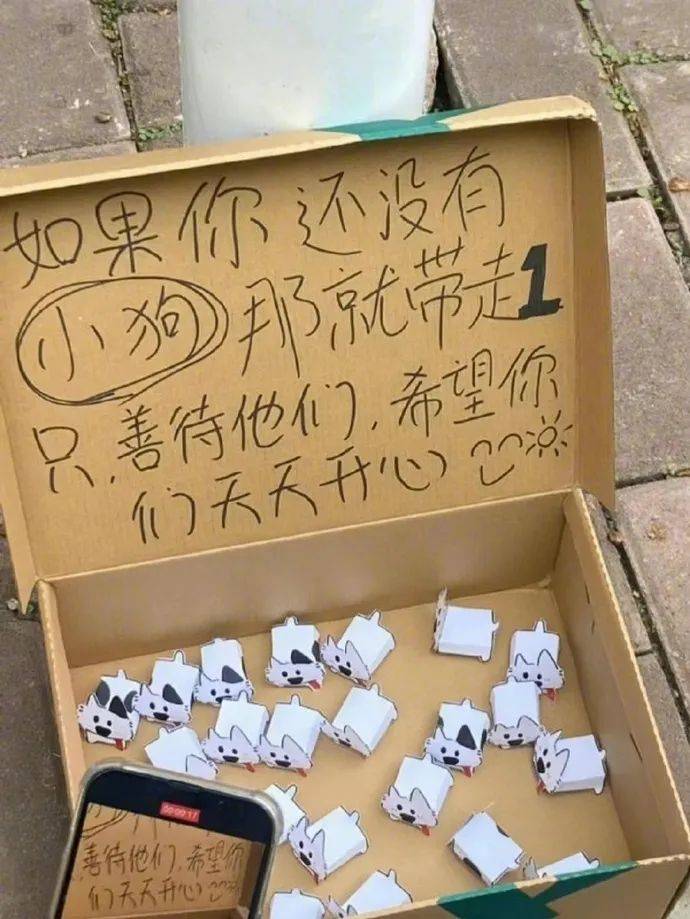 如果你还没有
小狗那就带走1
只,善待他们,希望你
们天天开心
00:00:17
善待他们,希望你
们天天开心